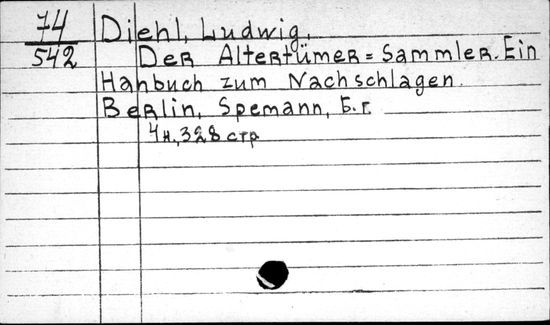 74
542
Diehl, Ludwig.
Der Altertümer=Sammler. Ein
Hahbuch zum Nachschlagen.
Berlin, Spemann, Б.г.
4н, 328 стр